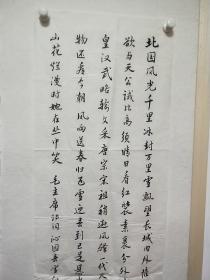 北国风光千里冰封万里雪飘望长城内外惟
欲与天公试比高须晴日看红装素裹分外
皇汉武略输文采唐宗宋祖稍逊风骚一代天
物还看今朝风雨送春归飞雪迎春到已是
山花烂漫时她在丛中笑 毛主席诗词沁园春雪